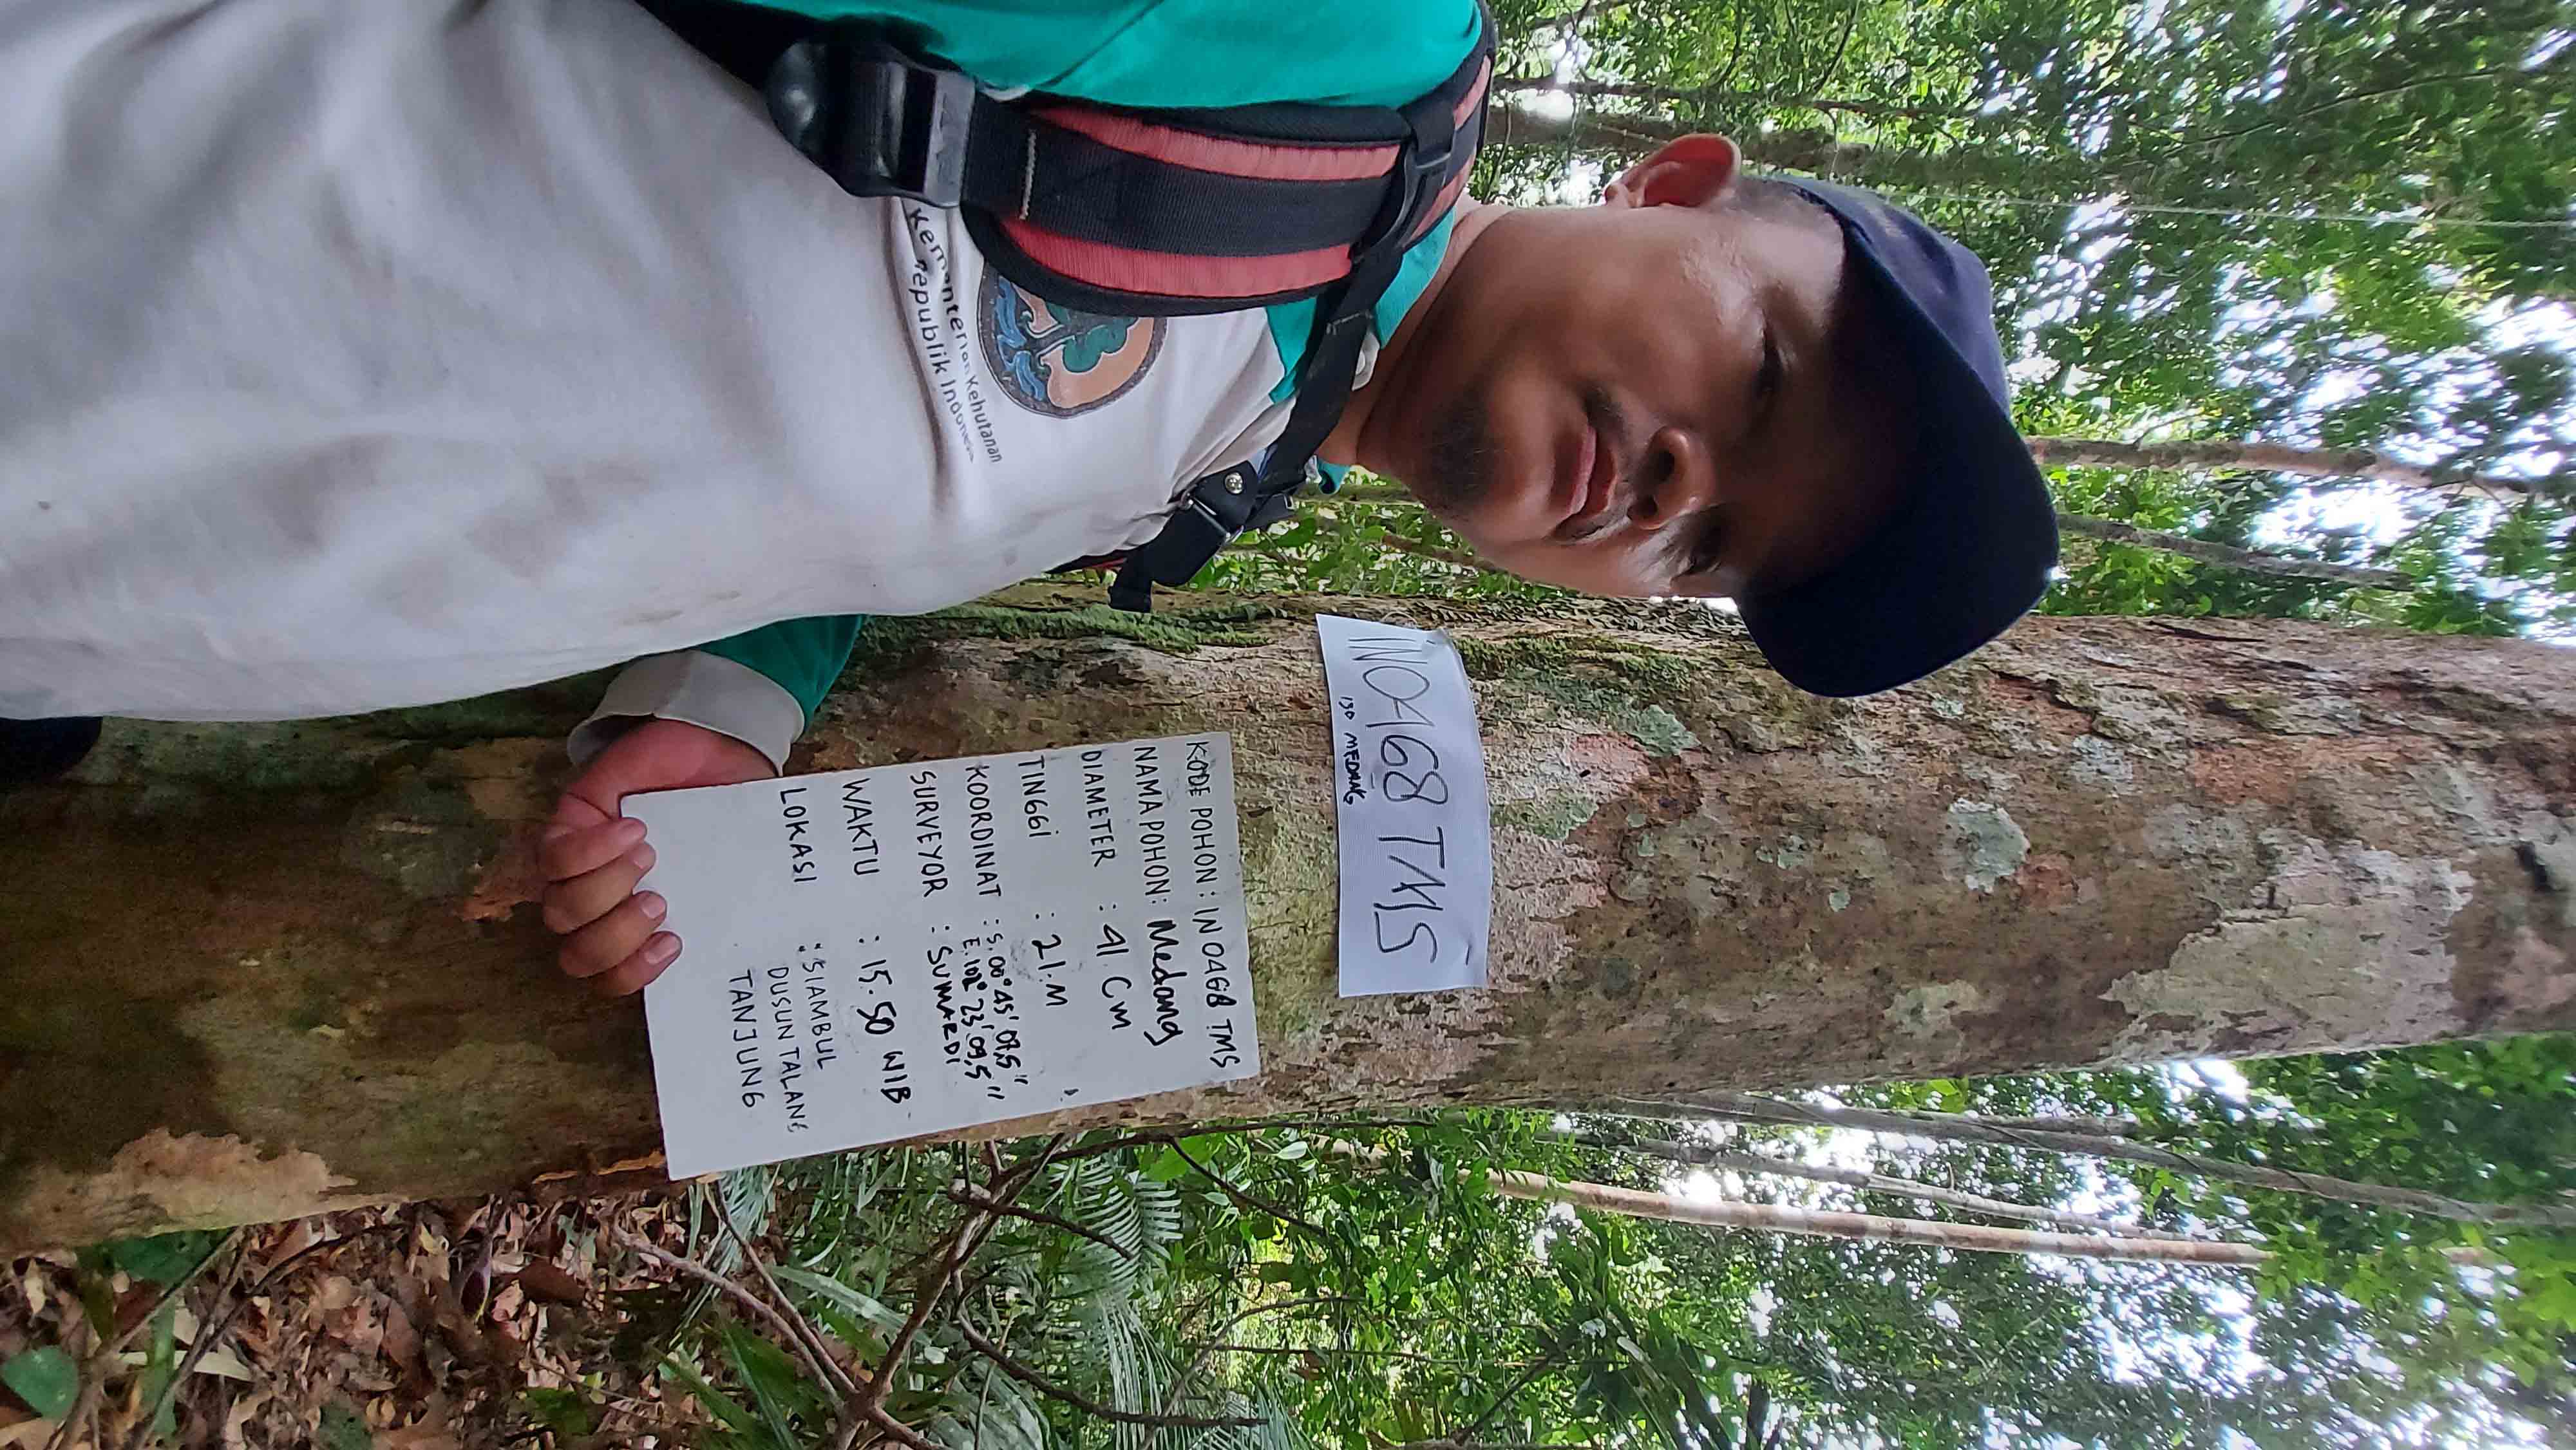 IN0468 TMS
130 MEDANG
KODE POHON : IN 0468 TMS
NAMA POHON : Medang
DIAMETER : 41 Cm
TINGGI : 21 M
KOORDINAT : S. 00° 45' 07,5"
E. 102° 23' 09,5"
SURVEYOR : SUMARDI
WAKTU : 15.50 WIB
LOKASI : SIAMBUL
DUSUN TALANG
TANJUNG
Kementerian Kehutanan
Republik Indonesia